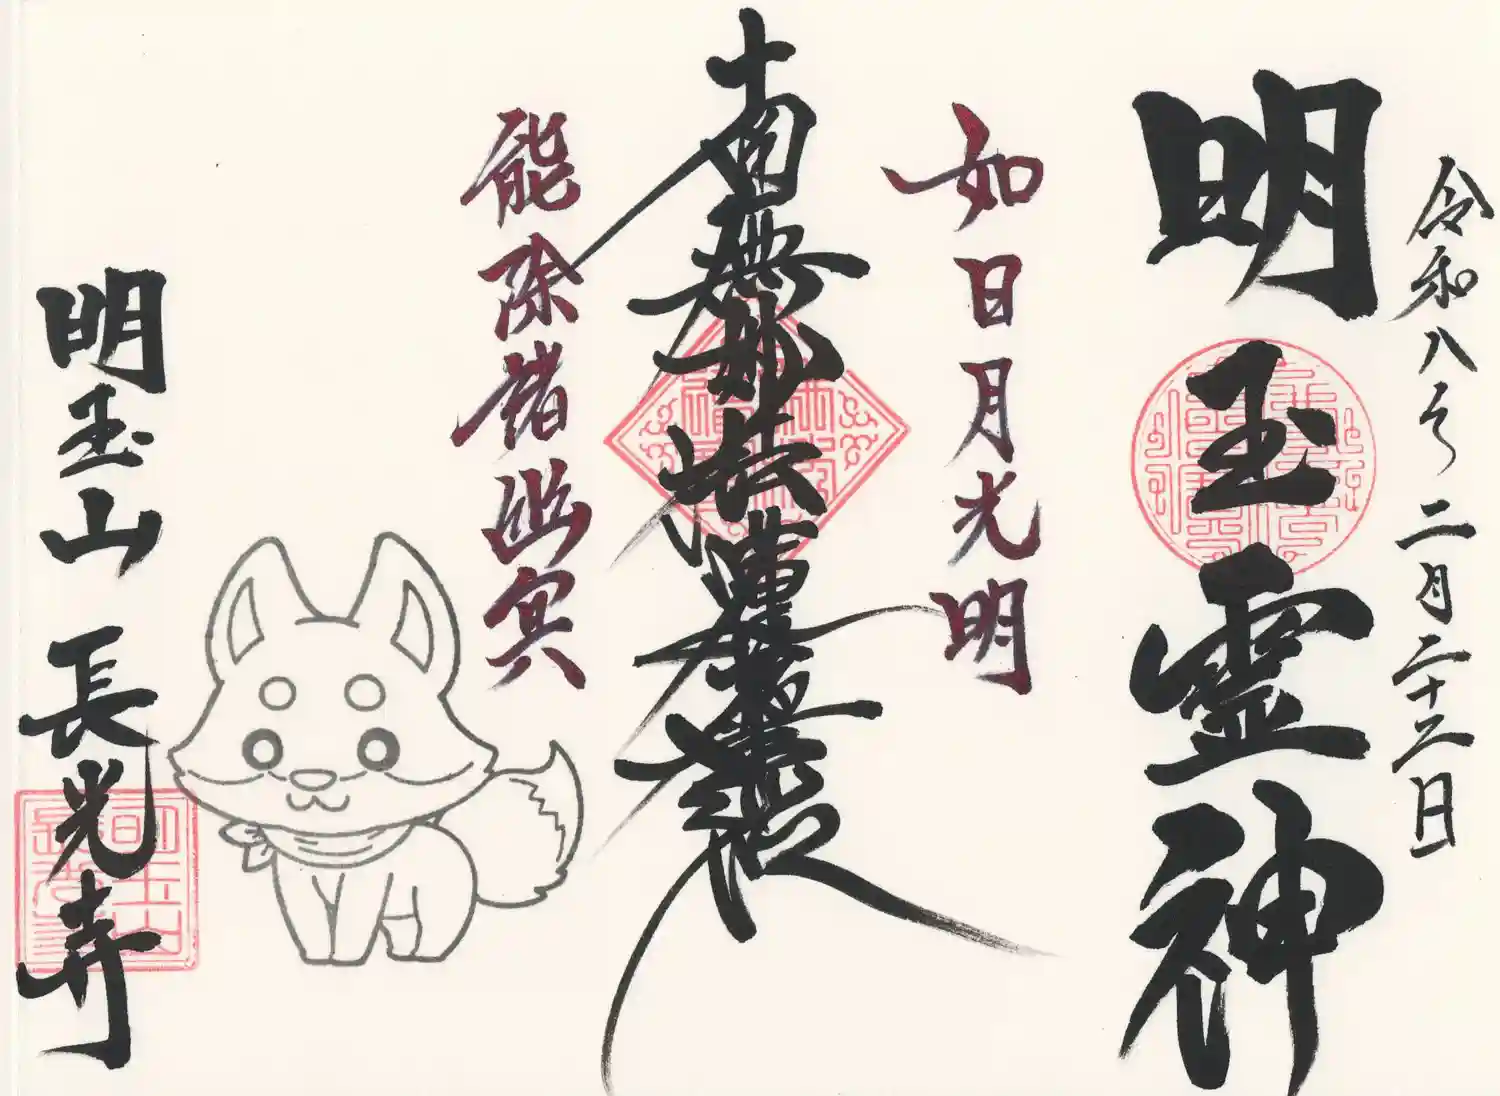 令和八年二月二十三日
明玉霊神
如日月光明
南無妙法蓮華経
能除諸幽冥
明玉山 長光寺